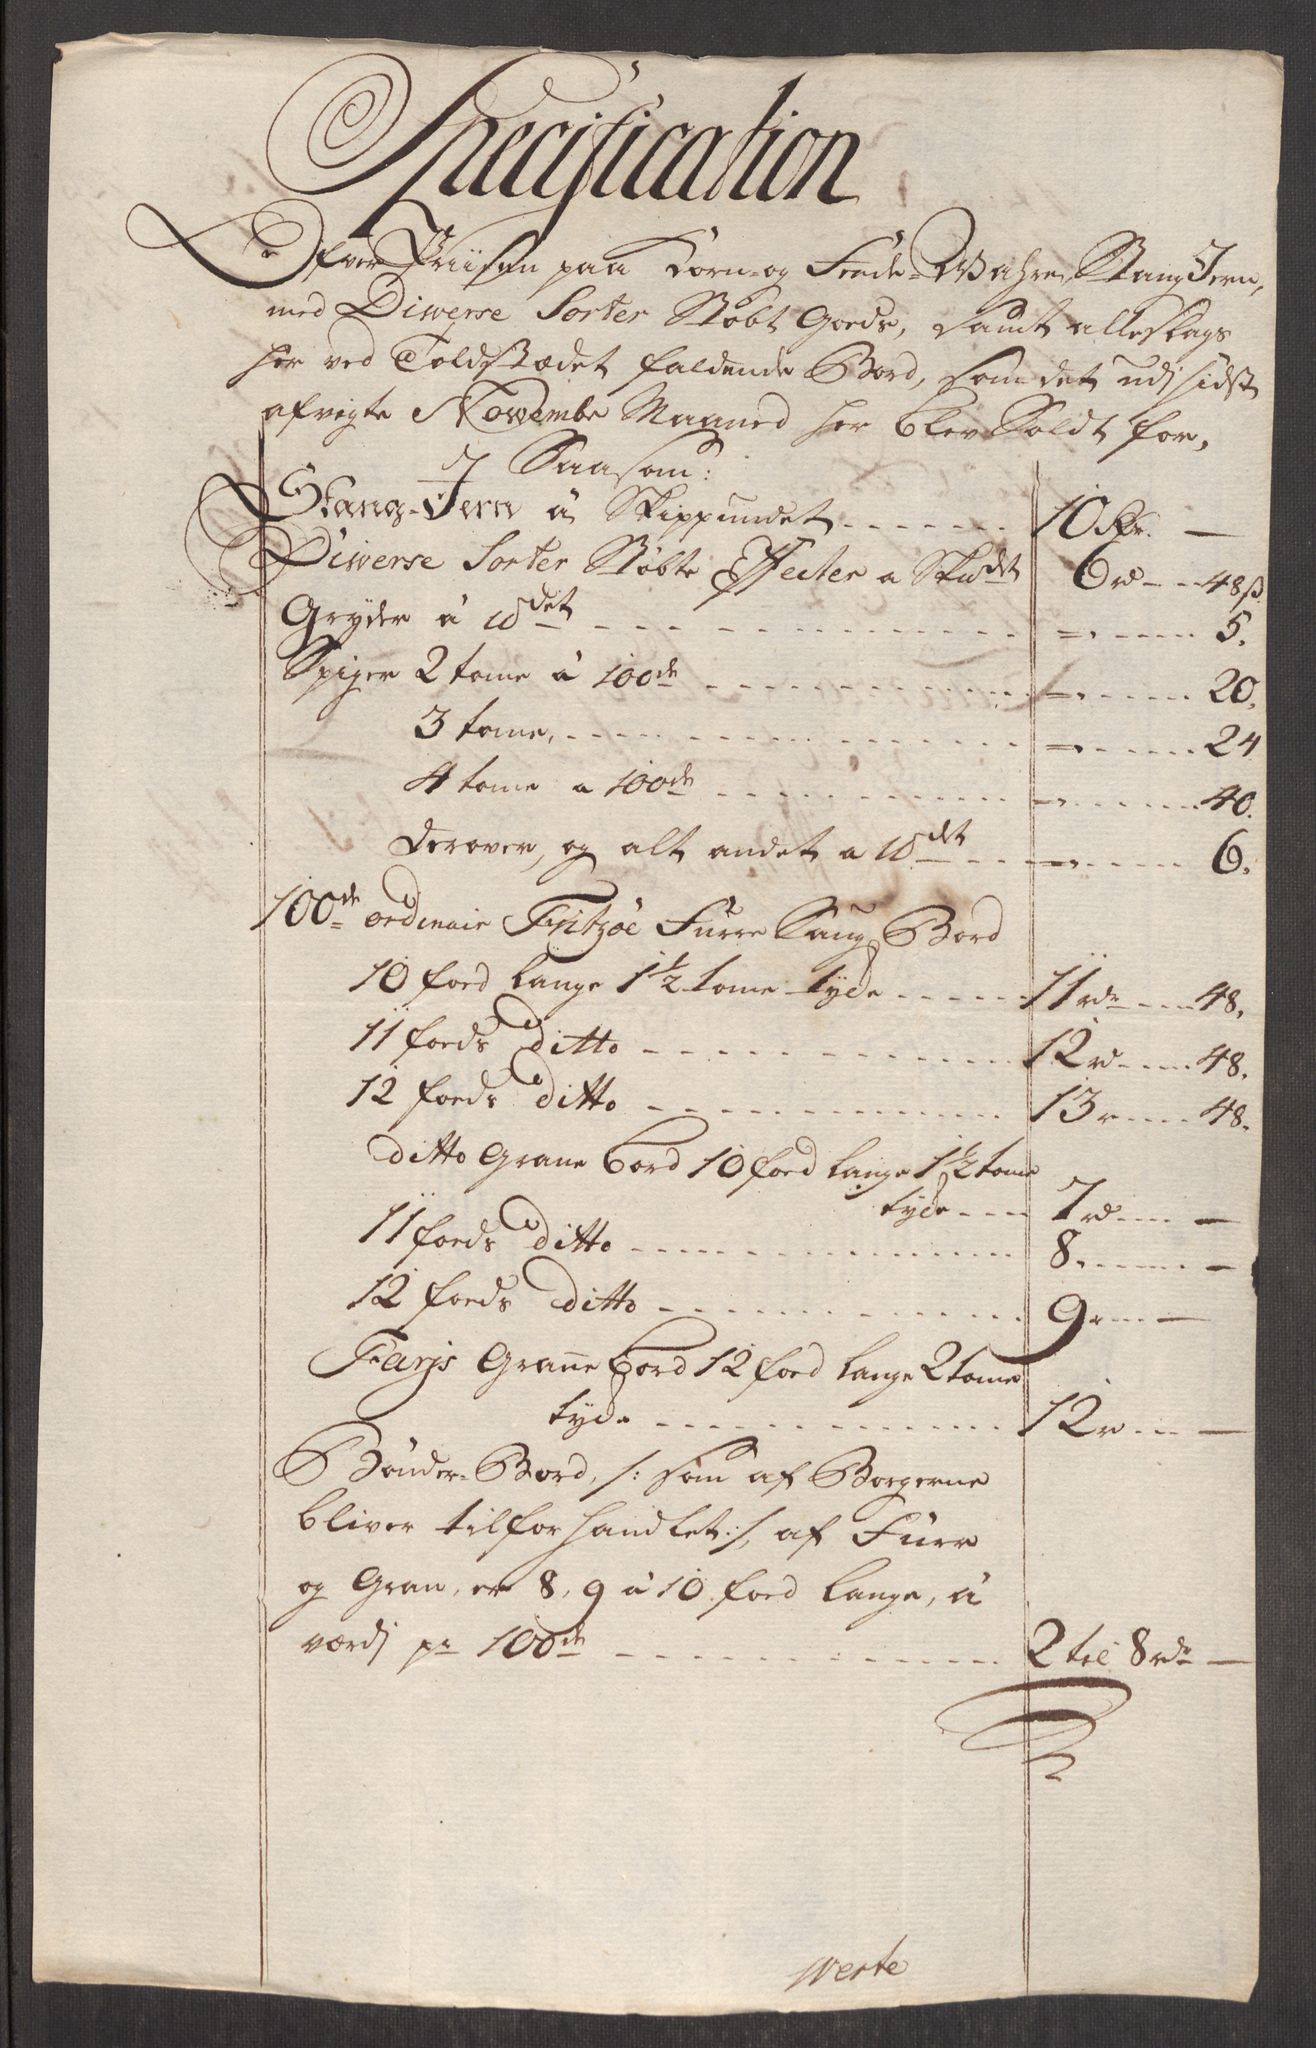 Specification
Ofver Priisen paa Korn- og Feede-Wahre, Stang Jern,
med Diverse Sorter Støbt Goeds, samt alleslags
her ved Toldstædet faldende Bord, som det udj sidst
afvigte Novembr Maaned her blev Soldt for,
Saasom:
Stang-Jern á Skippundet - - - - - - 10 Rdr. —
Diverse Sorter Støbte Effecter a Sk℔det 6 rd - - 48 ß.
Gryder á ℔det - - - - - - - - - - - - = . - - - - 5.
Spiger 2 tome á 100de - - - - - - - - - = . - - - - 20.
3 tome, - - - - - - - - - - - - - = . - - - - 24
4 tome a 100de - - - - - - - - - = . - - - - 40.
derover, og alt andet a ℔det - - = . - - - - 6.
100de ordinair Fritzøe Furre Saug Bord
10 foed lange 1½ tome tyde - - - - - 11 rdr - - - 48.
11 foeds ditto - - - - - - - - - - - 12 rd - - - 48.
12 foeds ditto - - - - - - - - - - - 13 r - - - 48.
ditto Grane bord 10 foed lange 1½ tome
tyde - - - 7 rd - - - —
11 foeds ditto - - - - - - - - - - - 8. - - - - —
12 foeds ditto - - - - - - - - - - - 9 r - - —
Farjs Grane bord 12 foed lange 2 tome
tyde - - - - - - - - - - - 12 r - - —
Bönder-Bord, /: som af Borgerne
bliver tilforhandlet :/, af Furr
og Gran, er 8, 9 á 10 foed lange, á
værdj pr 100de - - - - - - - - - - - 2 til 8 rdr —
Verte